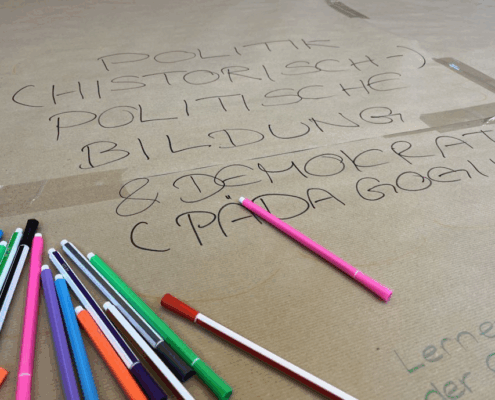 POLITIK
(HISTORISCH-)
POLITISCHE
BILDUNG
& DEMOKRAT
(PÄDAGOGI
Lerne
der